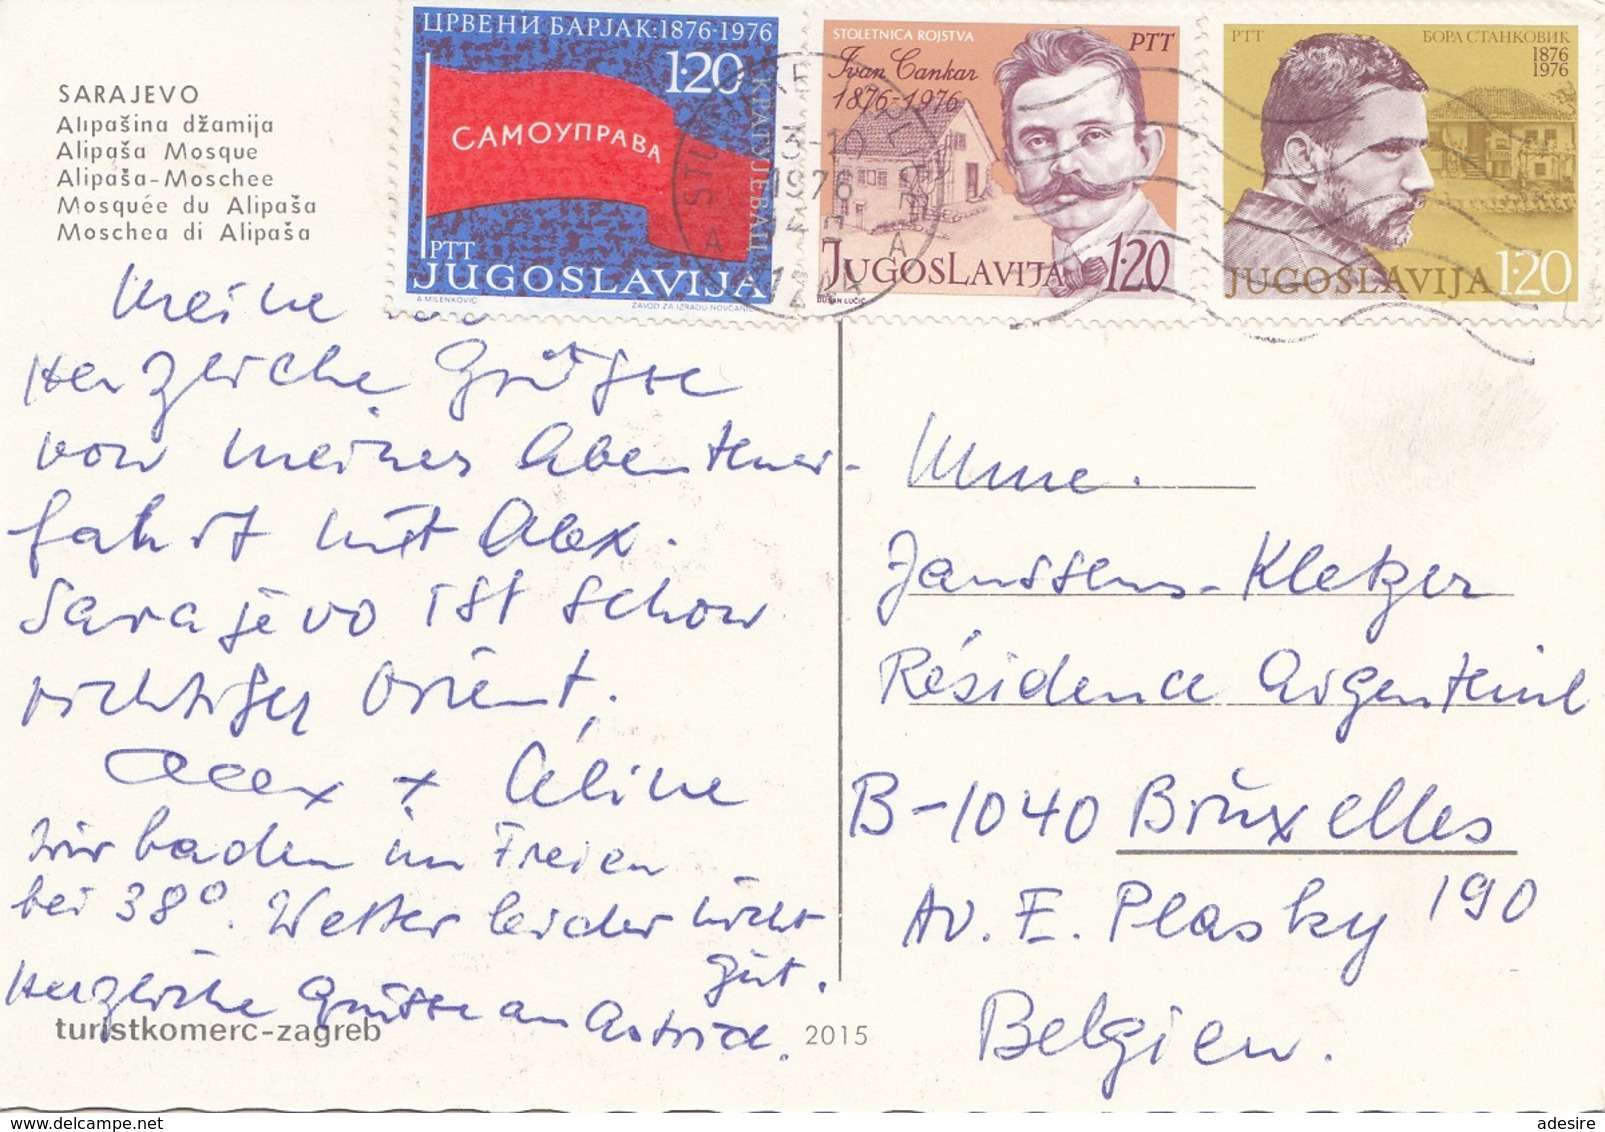 ЦРВЕНИ БАРЈАК·1876·1976
1·20
КРАГУЈЕВАЦ
САМОУПРАВА
PTT
JUGOSLAVIJA
A. MILENKOVIĆ
ZAVOD ZA IZRADU NOVČANICA
STOLETNICA ROJSTVA
PTT
Ivan Cankar
1876-1976
JUGOSLAVIJA
1·20
DUŠAN LUČIĆ
PTT
БОРА СТАНКОВИЋ
1876
1976
JUGOSLAVIJA
1·20
1976
SARAJEVO
Alipašina džamija
Alipaša Mosque
Alipaša-Moschee
Mosquée du Alipaša
Moschea di Alipaša
Meine
Herzliche Grüsse
von meiner Abenteuer-
fahrt mit Alex.
Sarajevo ist schon
richtiger Orient.
Alex + Céline
Wir baden im Freien
bei 38°. Wetter leider nicht
gut.
Herzliche Grüsse an Astrid.
turistkomerc-zagreb
2015
Mme.
Janssens-Kletzer
Résidence Argenteuil
B-1040 Brüxelles
Av. E. Plasky 190
Belgien.
adesire